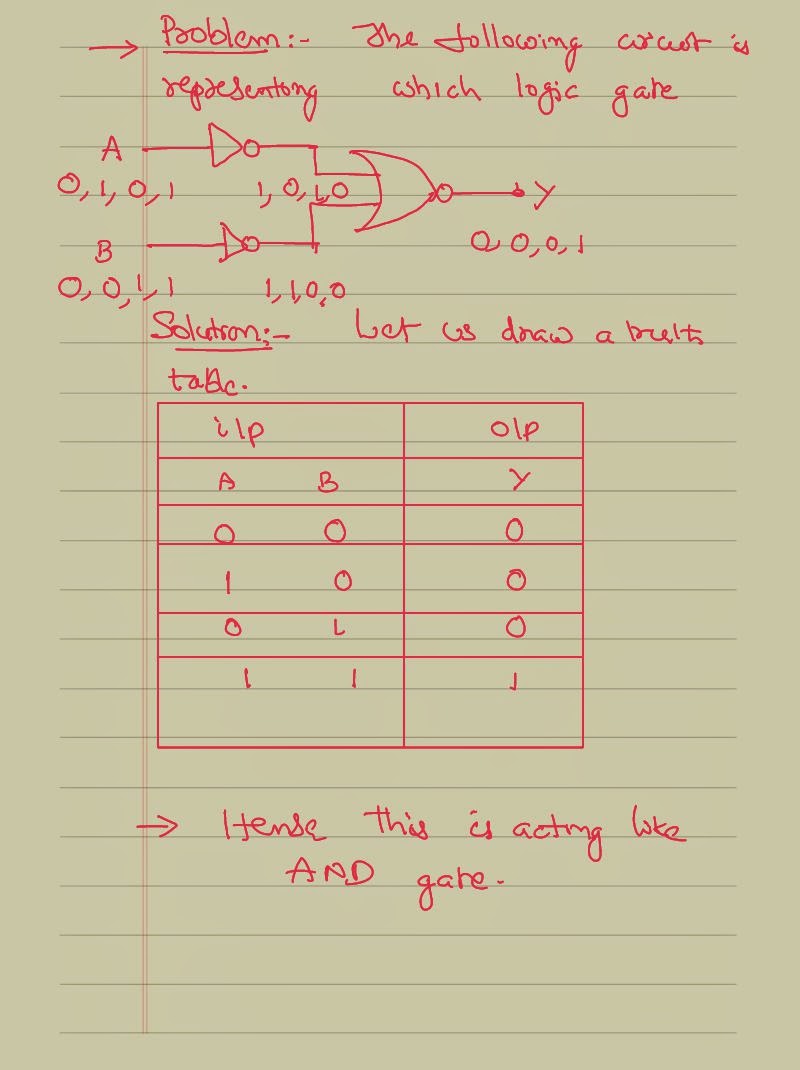 → Problem:- The following circuit is
representing which logic gate
A
0, 1, 0, 1 1, 0, 1, 0 Y
B 0, 0, 0, 1
0, 0, 1, 1 1, 1, 0, 0
Solution:- Let us draw a truth
table.
i/p o/p
A B Y
0 0 0
1 0 0
0 1 0
1 1 1
→ Hense this is acting like
AND gate.